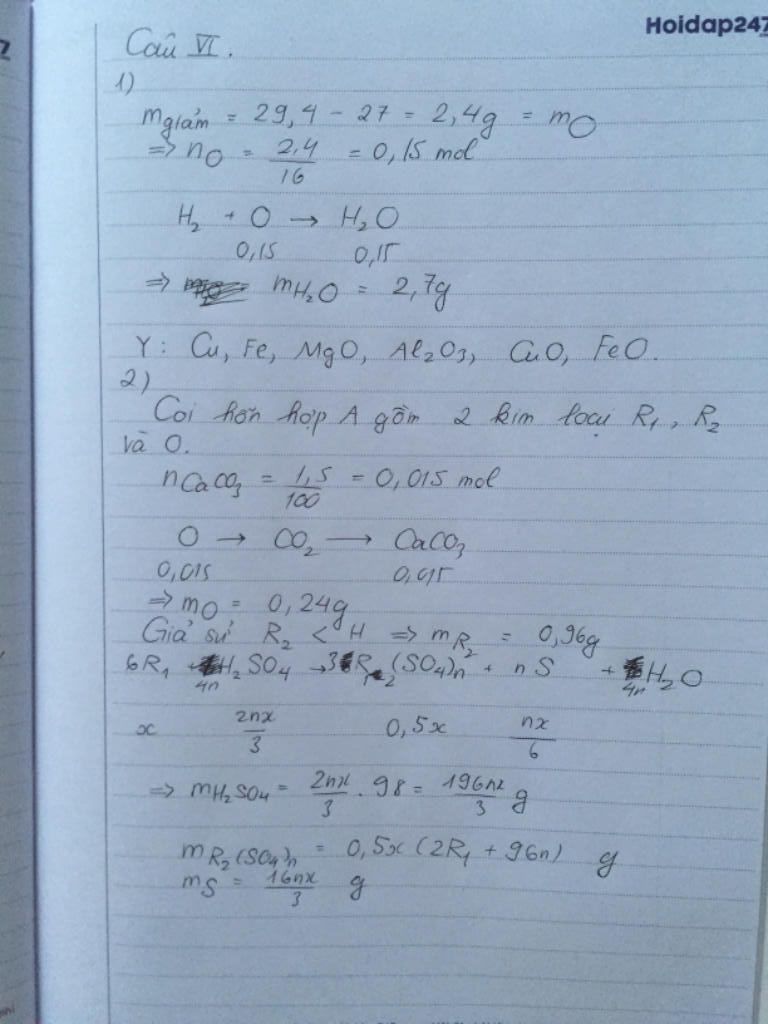 Hoidap247
Câu VI.
1)
m giảm = 29,4 - 27 = 2,4g = mO
=> nO = 2,4/16 = 0,15 mol
H2 + O → H2O
0,15 0,15
=> mH2O = 2,7g
Y: Cu, Fe, MgO, Al2O3, CuO, FeO.
2)
Coi hỗn hợp A gồm 2 kim loại R1, R2
và O.
nCaCO3 = 1,5/100 = 0,015 mol
O → CO2 → CaCO3
0,015 0,015
=> mO = 0,24g
Giả sử R2 < H => mR2 = 0,96g
6R1 + 4nH2SO4 → 3R2(SO4)n + nS + 4nH2O
x 2nx/3 0,5x nx/6
=> mH2SO4 = 2nx/3 . 98 = 196nx/3 g
mR2(SO4)n = 0,5x (2R1 + 96n) g
mS = 16nx/3 g